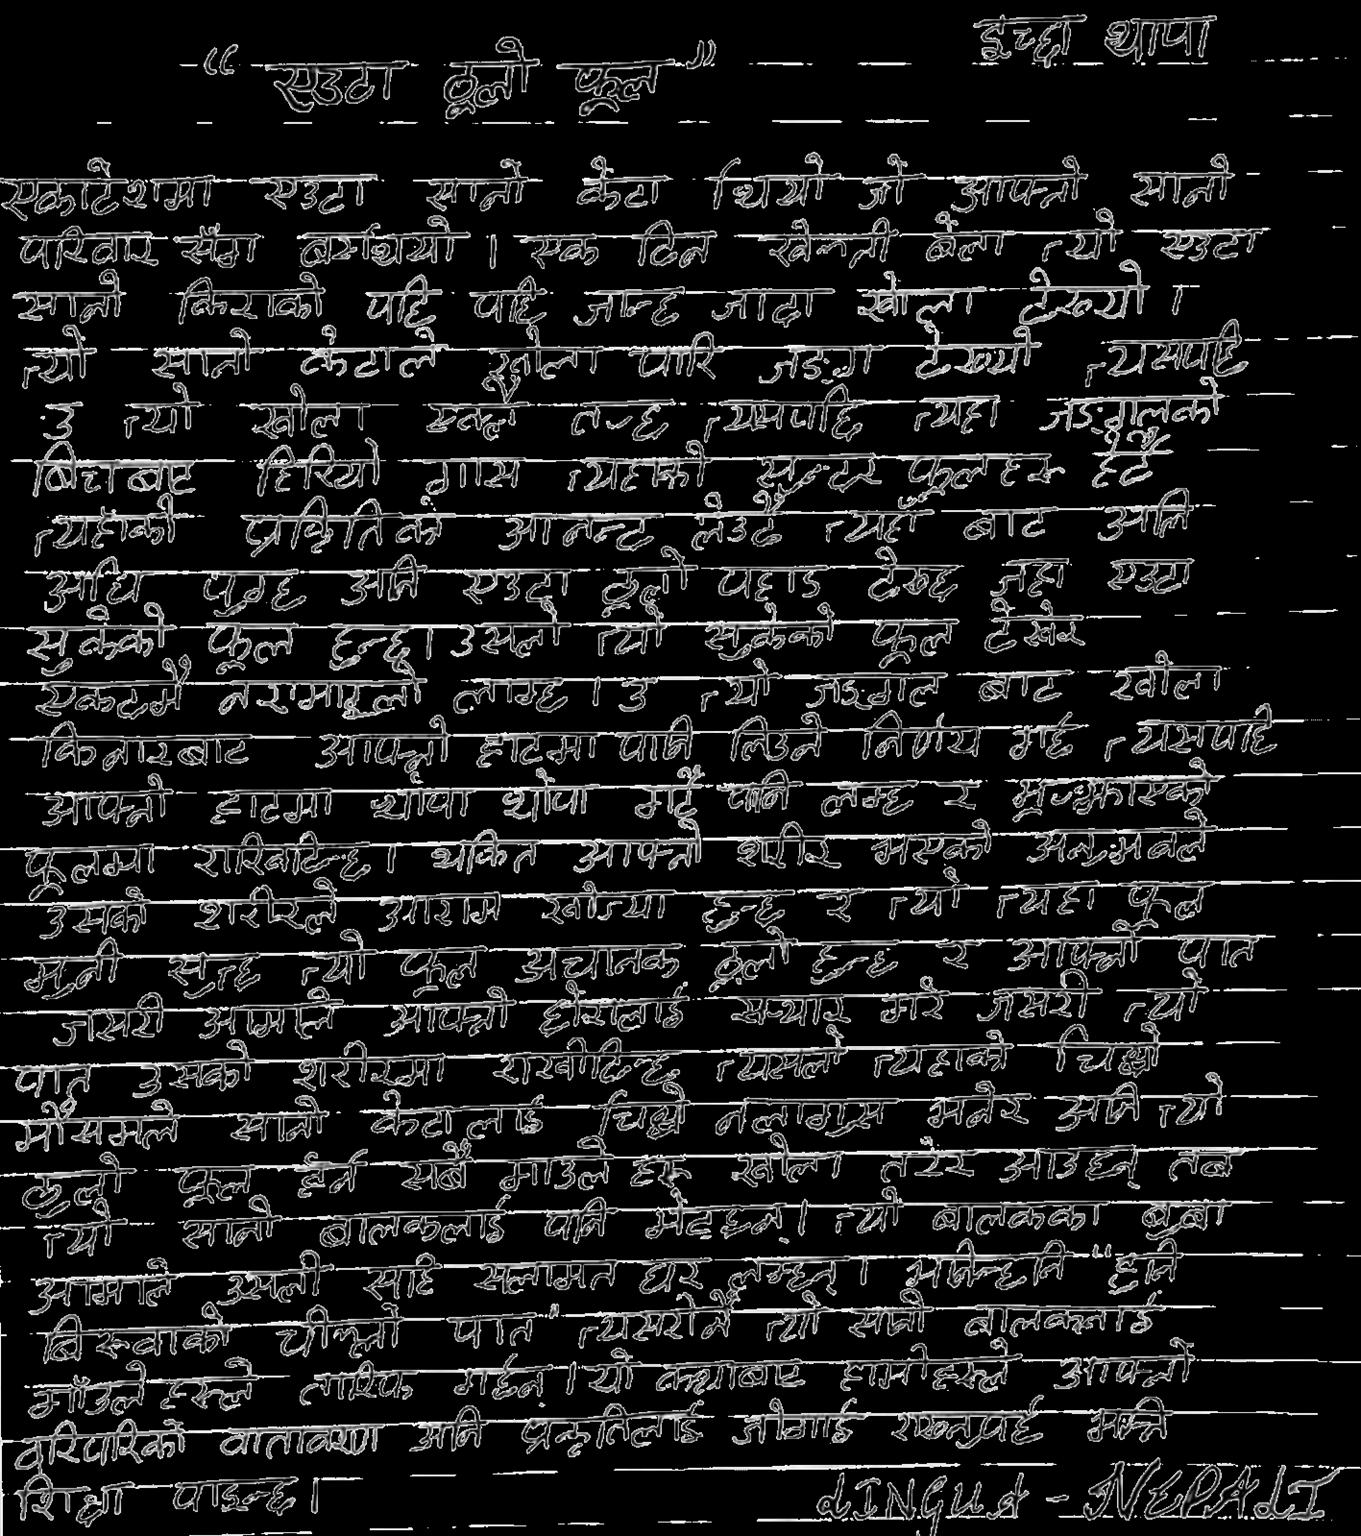 इच्छा थापा
“एउटा ठूलो फूल”
एकादेशमा एउटा सानो केटा थियो जो आफ्नो सानो
परिवार सँग बस्थियो । एक दिन खेल्नी बेला त्यो एउटा
सानो किराको पछि पछि जान्छ जादा खोला देख्यो ।
त्यो सानो केटाले खोला पारि जङ्ग देख्यो त्यसपछि
उ त्यो खोला एक्लै तर्छ त्यसपछि त्यहा जङ्गलको
बिचबाट हिरियो गास त्यहाको सुन्दर फूलहरु हेर्दै
त्यहाँको प्रकितिको आनन्द लेउदै त्यहाँ बाट अलि
अघि पुग्छ अनि एउटा ठूलो पहाड देख्छ जहा एउटा
सुकेको फूल हुन्छ। उसलो त्यो सुकेको फूल देखेर
एकदमै नरामाइलो लाग्छ । उ त्यो जङ्गल बाट खोला
किनारबाट आफ्नो हाटमा पानि लिउने निर्णय गर्छ त्यसपछि
आफ्नो हाटमा थोपा थोपा गर्दै पानि लग्छ र
फूलमा राखिदिन्छ। थकित आफ्नो शरीर भएको
उसको शरीरले आराम खोज्या हुन्छ र त्यो त्यहा फूल
मुनी सुत्छ त्यो फूल अचानक ठूलो हुन्छ र आफ्नो पात
जसरी आमाले आफ्नो छोरालाई स्याहार गरे जसरी त्यो
पात उसको शरीरमा राखीदिन्छ त्यसलो त्यहाको चिसो
मौसमले सानो केटालाई चिसो नलागोस भनेर अनि त्यो
ठूलो फूल हेर्न सबै गाउले हरु खोला तरेर आउछन् तब
त्यो सानो बालकलाई पनि भेट्छन्। त्यो बालकका बुबा
आमाले उसलो सहि सलामत घर लग्छन्। भनिन्छनि “हुनि
बिरुवाको चील्लो पात” त्यसरीनै त्यो सानो बालकलाई
गाँउले हरुले तारिफ गर्छन्। यो कथाबाट हामीहरुले आफ्नो
वरिपरिको वातावरण अनि प्रकृतिलाई जोगाई राख्नुपर्छ भन्ने
शिक्षा पाइन्छ।
LINGUA - NEPALI